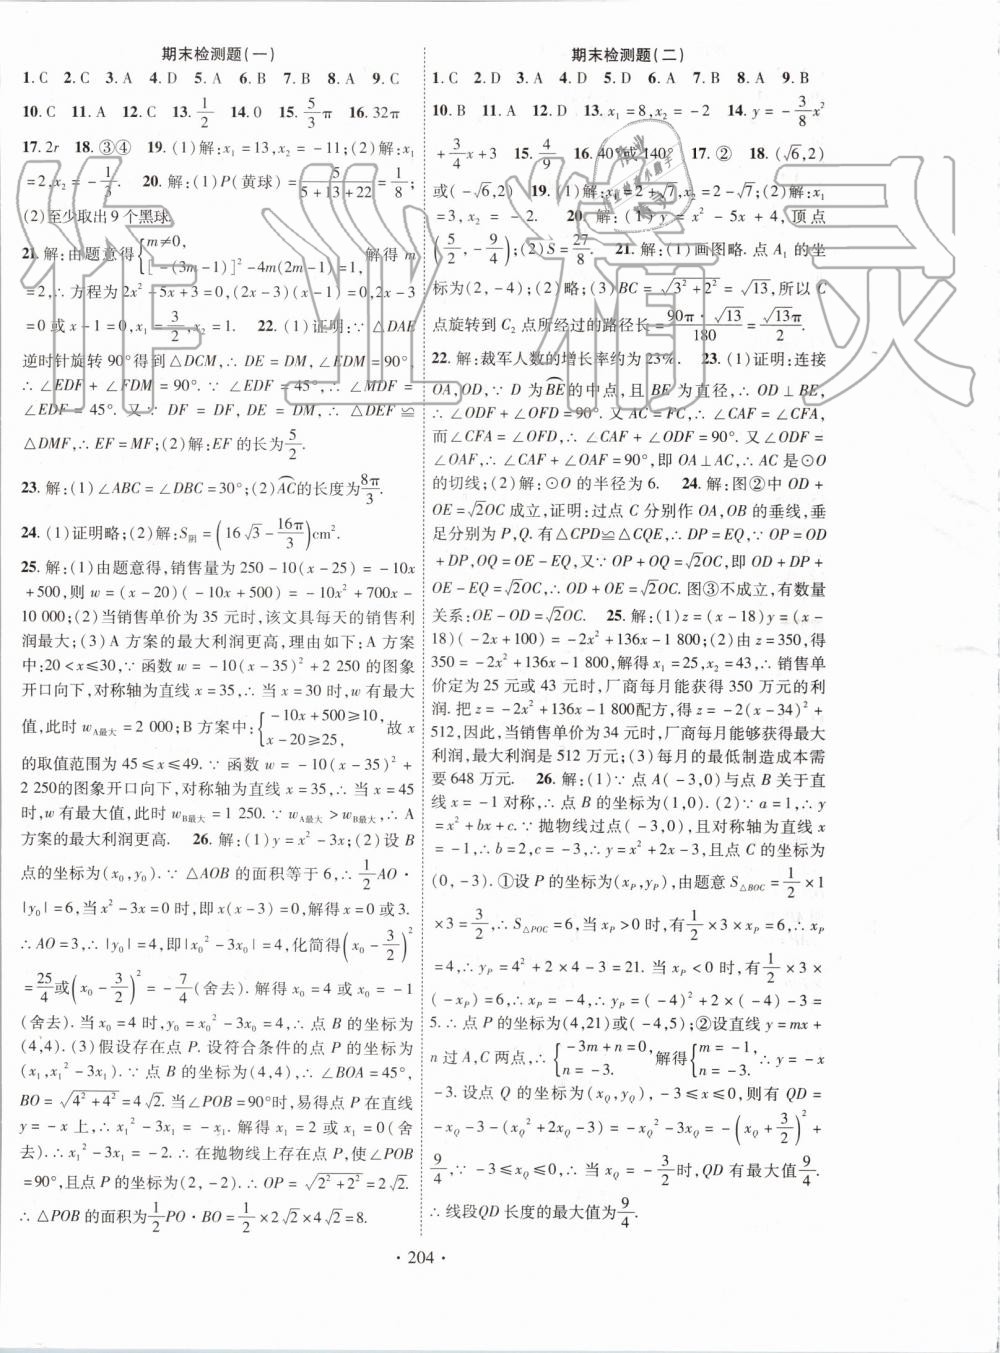 期末检测题(一)
1. C 2. C 3. A 4. D 5. A 6. B 7. B 8. A 9. C
10. C 11. A 12. C 13. 1/2 14. 0 15. 5/3π 16. 32π
17. 2r 18. ③④ 19. (1)解:x₁=13,x₂=-11;(2)解:x₁
=2,x₂=-1/3. 20. 解:(1)P(黄球)=5/(5+13+22)=1/8;
(2)至少取出9个黑球.
21. 解:由题意得{m≠0, [-(3m-1)]²-4m(2m-1)=1, 解得 m
=2,∴方程为2x²-5x+3=0,(2x-3)(x-1)=0,2x-3
=0或x-1=0,x₁=3/2,x₂=1. 22. (1)证明:∵△DAE
逆时针旋转90°得到△DCM,∴DE=DM,∠EDM=90°,
∴∠EDF+∠FDM=90°.∵∠EDF=45°,∴∠MDF=
∠EDF=45°.又∵DF=DF,DE=DM,∴△DEF≌
△DMF,∴EF=MF;(2)解:EF的长为5/2.
23. 解:(1)∠ABC=∠DBC=30°;(2)AC的长度为8π/3.
24. (1)证明略;(2)解:S阴=(16√3-16π/3)cm²
25. 解:(1)由题意得,销售量为250-10(x-25)=-10x
+500,则w=(x-20)(-10x+500)=-10x²+700x-
10 000;(2)当销售单价为35元时,该文具每天的销售利
润最大;(3)A方案的最大利润更高,理由如下:A方案
中:20<x≤30,∵函数w=-10(x-35)²+2 250的图象
开口向下,对称轴为直线x=35,∴当x=30时,w有最大
值,此时wA最大=2 000;B方案中:{-10x+500≥10, x-20≥25, 故x
的取值范围为45≤x≤49.∵函数w=-10(x-35)²+
2 250的图象开口向下,对称轴为直线x=35,∴当x=45
时,w有最大值,此时wB最大=1 250.∵wA最大>wB最大,∴A
方案的最大利润更高. 26. 解:(1)y=x²-3x;(2)设B
点的坐标为(x₀,y₀).∵△AOB的面积等于6,∴1/2AO·
|y₀|=6,当x²-3x=0时,即x(x-3)=0,解得x=0或3.
∴AO=3,∴|y₀|=4,即|x₀²-3x₀|=4,化简得(x₀-3/2)²
=25/4或(x₀-3/2)²=-7/4(舍去).解得x₀=4或x₀=-1
(舍去).当x₀=4时,y₀=x₀²-3x₀=4,∴点B的坐标为
(4,4).(3)假设存在点P.设符合条件的点P的坐标为
(x₁,x₁²-3x₁).∵点B的坐标为(4,4),∴∠BOA=45°,
BO=√(4²+4²)=4√2.当∠POB=90°时,易得点P在直线
y=-x上,∴x₁²-3x₁=-x₁.解得x₁=2或x₁=0(舍
去).∴x₁²-3x₁=-2.∴在抛物线上存在点P,使∠POB
=90°,且点P的坐标为(2,-2).∴OP=√(2²+2²)=2√2.
∴△POB的面积为1/2PO·BO=1/2×2√2×4√2=8.
期末检测题(二)
1. C 2. C 3. A 4. D 5. D 6. A 7. B 8. A 9. B
10. B 11. A 12. D 13. x₁=8,x₂=-2 14. y=-3/8x²
+3/4x+3 15. 4/9 16. 40°或140° 17. ② 18. (√6,2)
或(-√6,2) 19. (1)解:x₁=2+√7,x₂=2-√7;(2)解:x₁
=3,x₂=-2. 20. 解:(1)y=x²-5x+4,顶点
(5/2,-9/4);(2)S=27/8. 21. 解:(1)画图略.点A₁的坐
标为(2,-4);(2)略;(3)BC=√(3²+2²)=√13,所以C
点旋转到C₂点所经过的路径长=90π·√13/180=√13π/2.
22. 解:裁军人数的增长率约为23%. 23. (1)证明:连接
OA,OD,∵D为BE的中点,且BE为直径,∴OD⊥BE,
∴∠ODF+∠OFD=90°.又AC=FC,∴∠CAF=∠CFA,
而∠CFA=∠OFD,∴∠CAF+∠ODF=90°.又∠ODF=
∠OAF,∴∠CAF+∠OAF=90°,即OA⊥AC,∴AC是⊙O
的切线;(2)解:⊙O的半径为6. 24. 解:图②中OD+
OE=√2OC成立,证明:过点C分别作OA,OB的垂线,垂
足分别为P,Q.有△CPD≌△CQE,∴DP=EQ,∵OP=OD
+DP,OQ=OE-EQ,又∵OP+OQ=√2OC,即OD+DP+
OE-EQ=√2OC,∴OD+OE=√2OC.图③不成立,有数量
关系:OE-OD=√2OC. 25. 解:(1)z=(x-18)y=(x-
18)(-2x+100)=-2x²+136x-1 800;(2)由z=350,得
350=-2x²+136x-1 800,解得x₁=25,x₂=43,∴销售单
价定为25元或43元时,厂商每月能获得350万元的利
润.把z=-2x²+136x-1 800配方,得z=-2(x-34)²+
512,因此,当销售单价为34元时,每月能够获得最大
利润,最大利润是512万元;(3)每月的最低制造成本需
要648万元. 26. 解:(1)∵点A(-3,0)与点B关于直
线x=-1对称,∴点B的坐标为(1,0).(2)∵a=1,∴y
=x²+bx+c.∵抛物线过点(-3,0),且对称轴为直线x
=-1,∴b=2,c=-3,∴y=x²+2x-3,且点C的坐标为
(0,-3).①设P的坐标为(xP,yP),由题意S△BOC=1/2×1
×3=3/2,∴S△POC=6,当xP>0时,有1/2×3×xP=6,∴xP
=4,∴yP=4²+2×4-3=21.当xP<0时,有1/2×3×
(-xP)=6,∴xP=-4,∴yP=(-4)²+2×(-4)-3=
5.∴点P的坐标为(4,21)或(-4,5);②设直线y=mx+
n过A,C两点,∴{-3m+n=0, n=-3. 解得{m=-1, n=-3. ∴y=-x
-3.设点Q的坐标为(xQ,yQ),-3≤xQ≤0,则有QD=
-xQ-3-(xQ²+2xQ-3)=-xQ²-3xQ=-(xQ+3/2)²+
9/4,∵-3≤xQ≤0,∴当xQ=-3/2时,QD有最大值9/4.
∴线段QD长度的最大值为9/4.
·204·
作业精灵